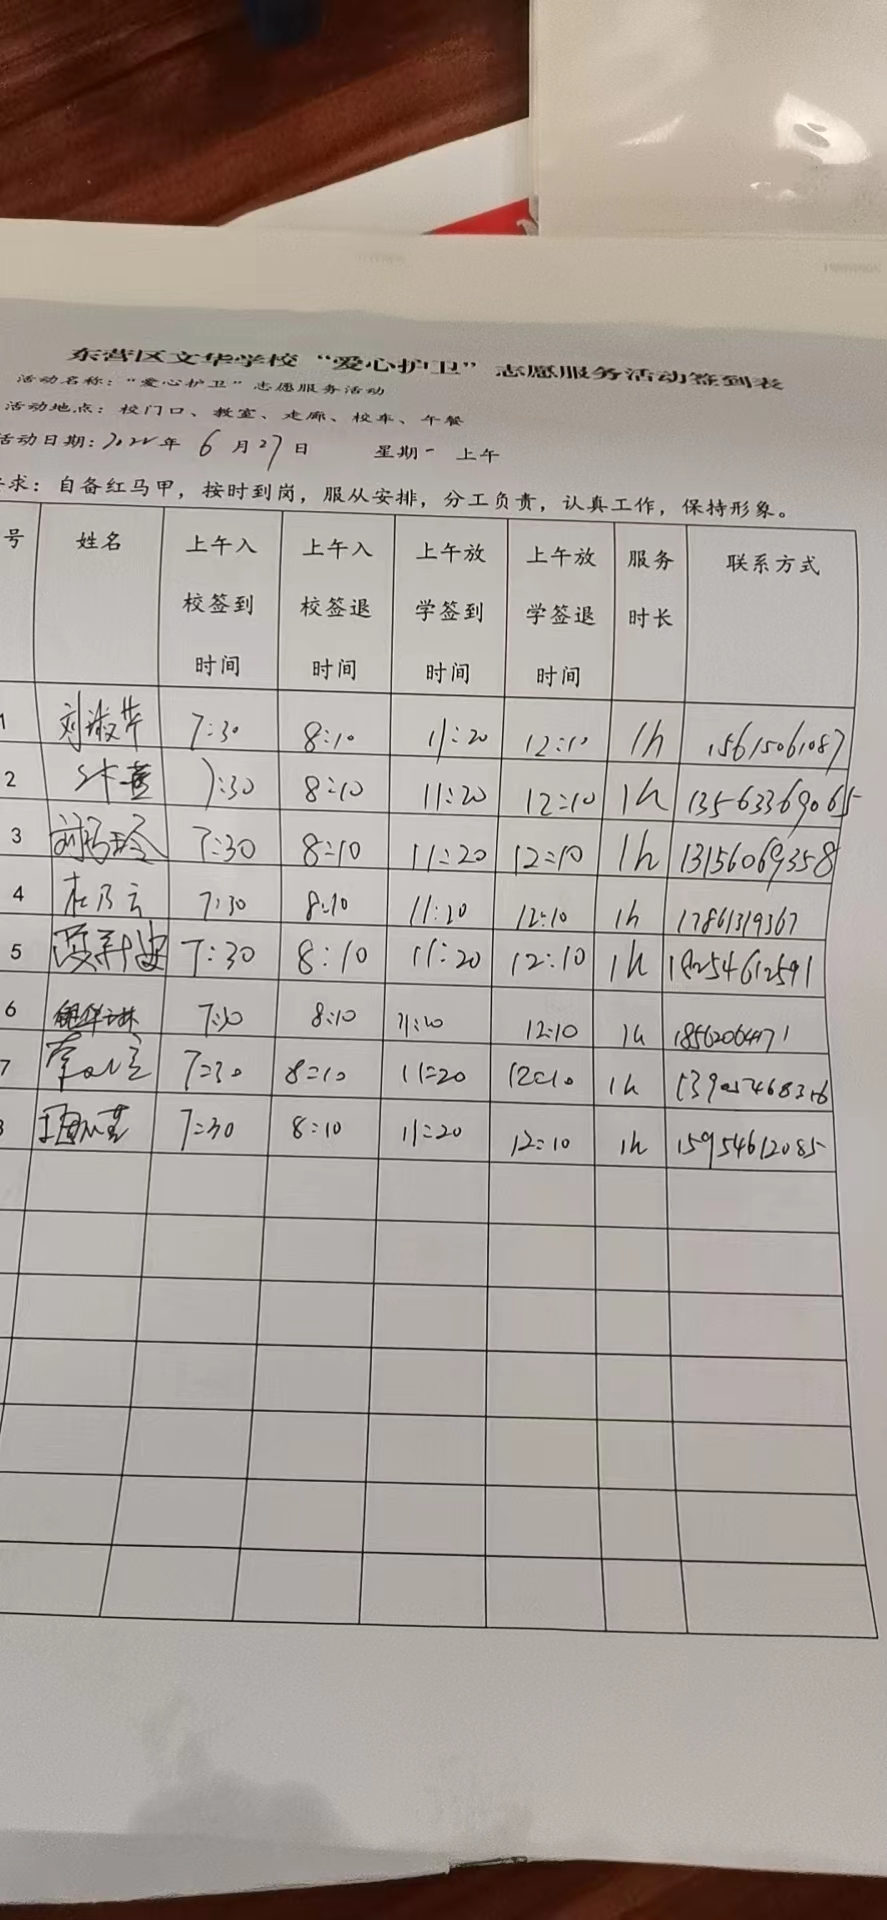 东营区文华学校“爱心护卫”志愿服务活动签到表
活动名称：“爱心护卫”志愿服务活动
活动地点：校门口、教室、走廊、校车、午餐
活动日期：2022年 6月27日 星期一 上午
求：自备红马甲，按时到岗，服从安排，分工负责，认真工作，保持形象。
号 姓名 上午入校签到时间 上午入校签退时间 上午放学签到时间 上午放学签退时间 服务时长 联系方式
1 刘淑芹 7:30 8:10 11:20 12:10 1h 15615061087
2 7:30 8:10 11:20 12:10 1h 13563369065
3 7:30 8:10 11:20 12:10 1h 13156069358
4 杜乃云 7:30 8:10 11:20 12:10 1h 17861319367
5 7:30 8:10 11:20 12:10 1h 18254612591
6 7:30 8:10 11:20 12:10 1h
7 7:30 8:10 11:20 12:10 1h
7:30 8:10 11:20 12:10 1h 15954612085